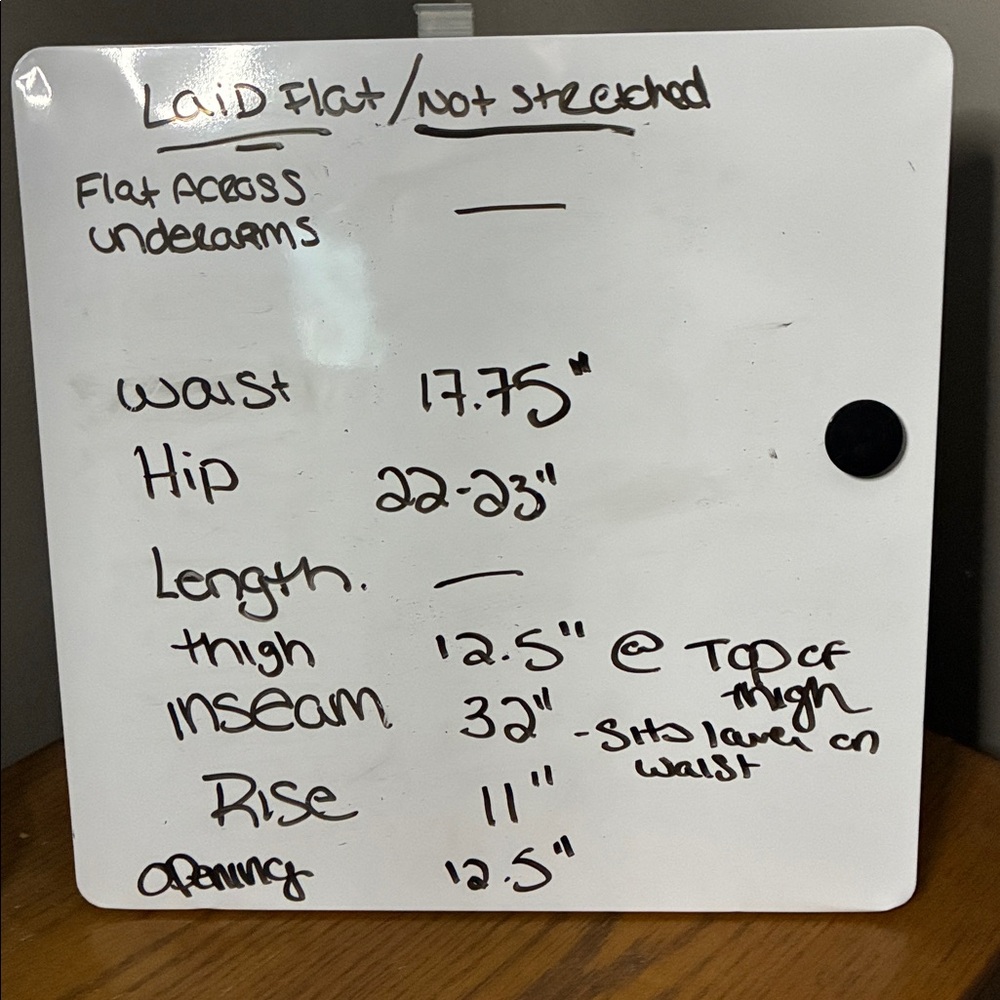 Laid Flat / Not Stretched
Flat Across —
underarms
Waist 17.75"
Hip 22-23"
Length. —
thigh 12.5" @ Top of
thigh
inseam 32" - Sits lower on
waist
Rise 11"
opening 12.5"